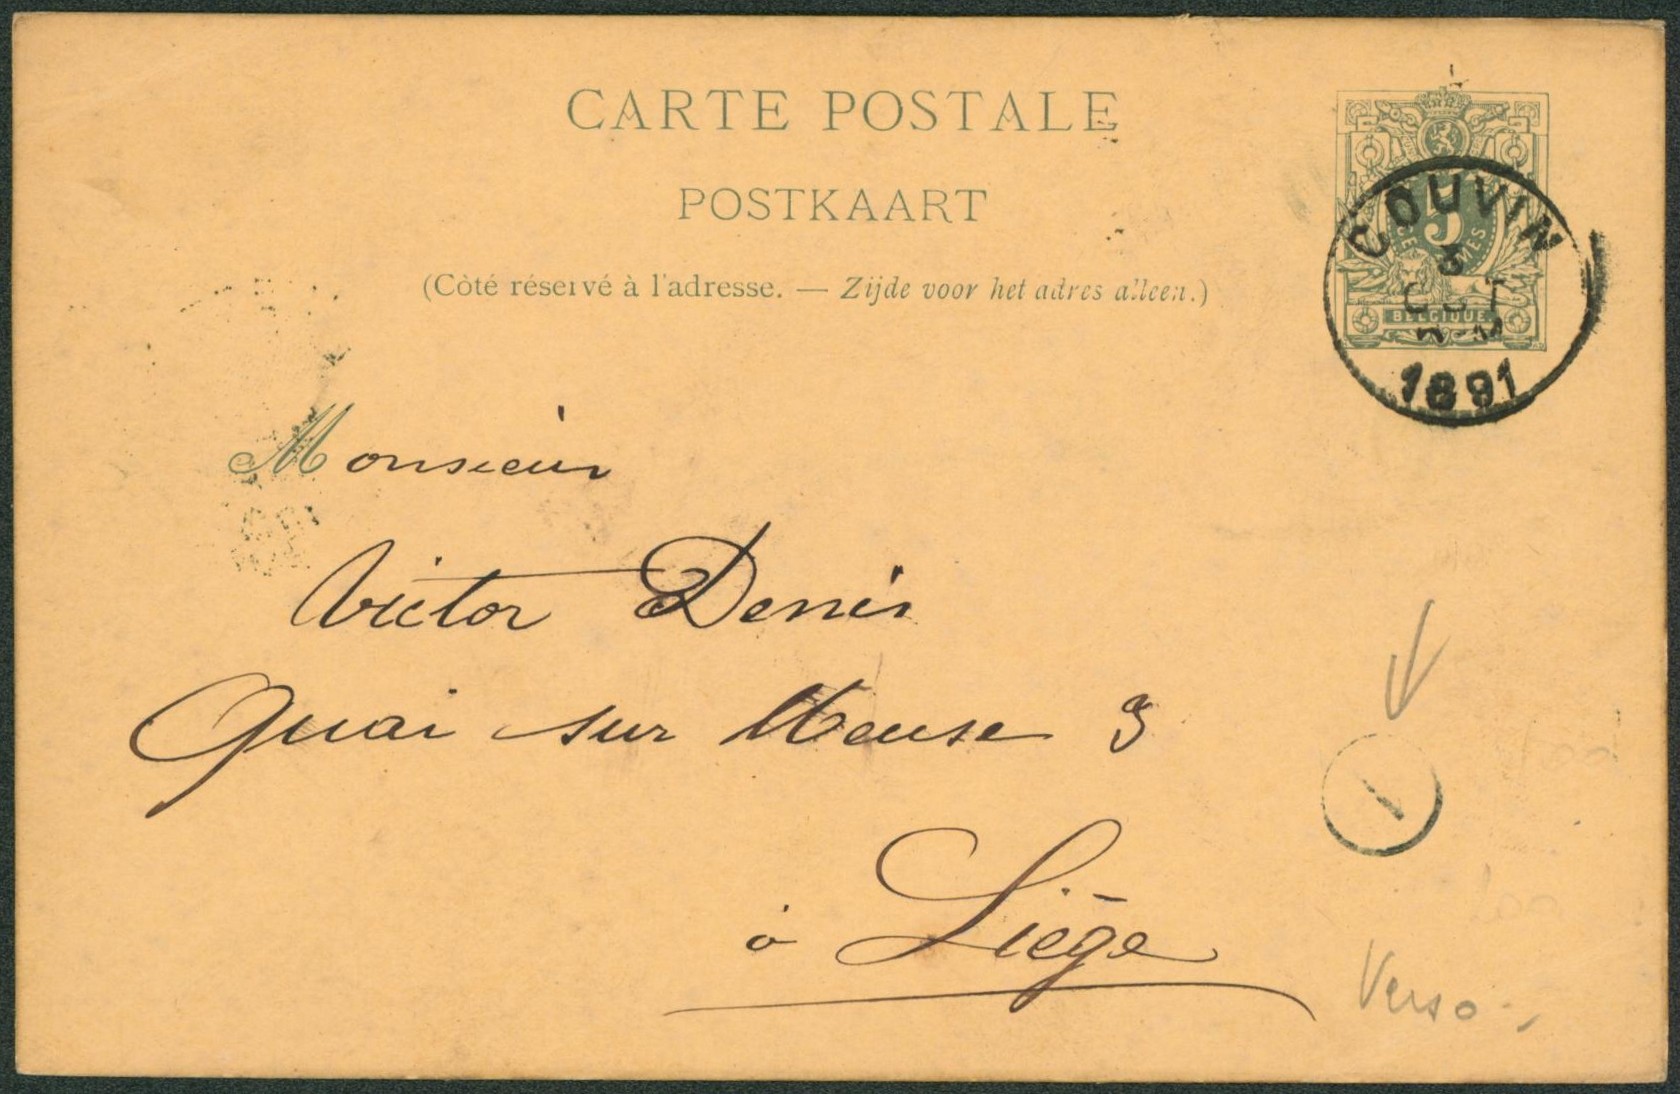 CARTE POSTALE
POSTKAART
(Côté réservé à l'adresse. — Zijde voor het adres alleen.)
5
BELGIQUE
COUVIN
3
OCT
1891
Monsieur
Victor Denis
Quai sur Meuse 3
à Liége
1
Verso